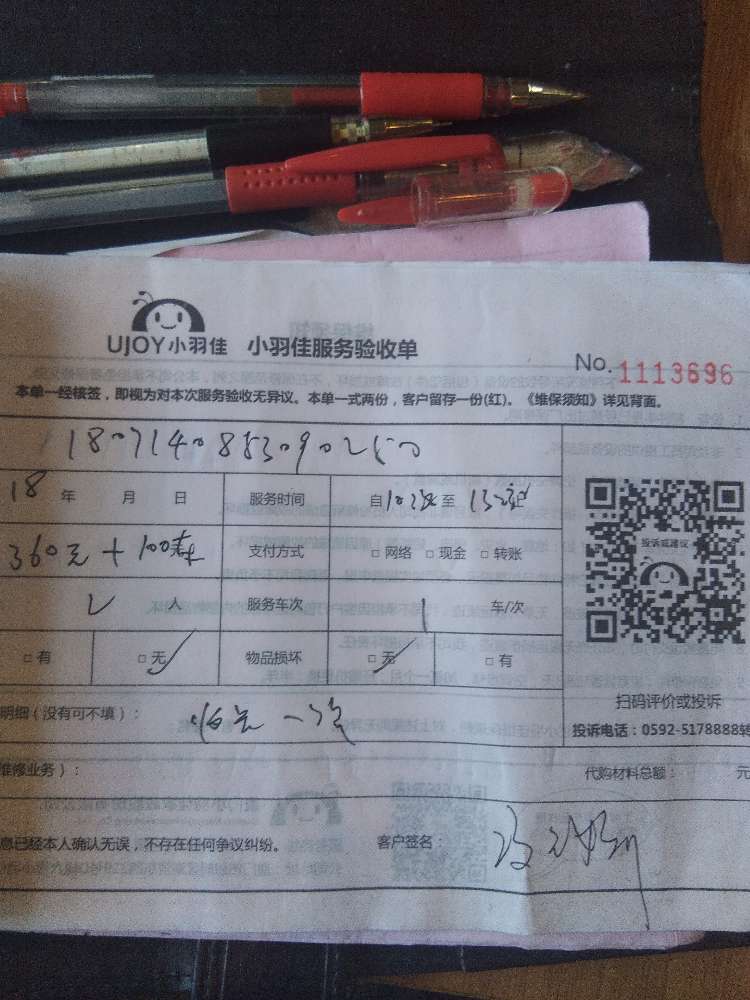 UJOY小羽佳 小羽佳服务验收单
No. 1113696
本单一经核签，即视为对本次服务验收无异议。本单一式两份，客户留存一份(红)。《维保须知》详见背面。
18071408853090250
18 年 月 日 服务时间 自 至
360元+100 支付方式 □网络 □现金 □转账
投诉或建议
2 人 服务车次 1 车/次
□有 □无 物品损坏 □无 □有
扫码评价或投诉
明细（没有可不填）：
投诉电话：0592-5178888转
维修业务）： 代购材料总额： 元
息已经本人确认无误，不存在任何争议纠纷。 客户签名：